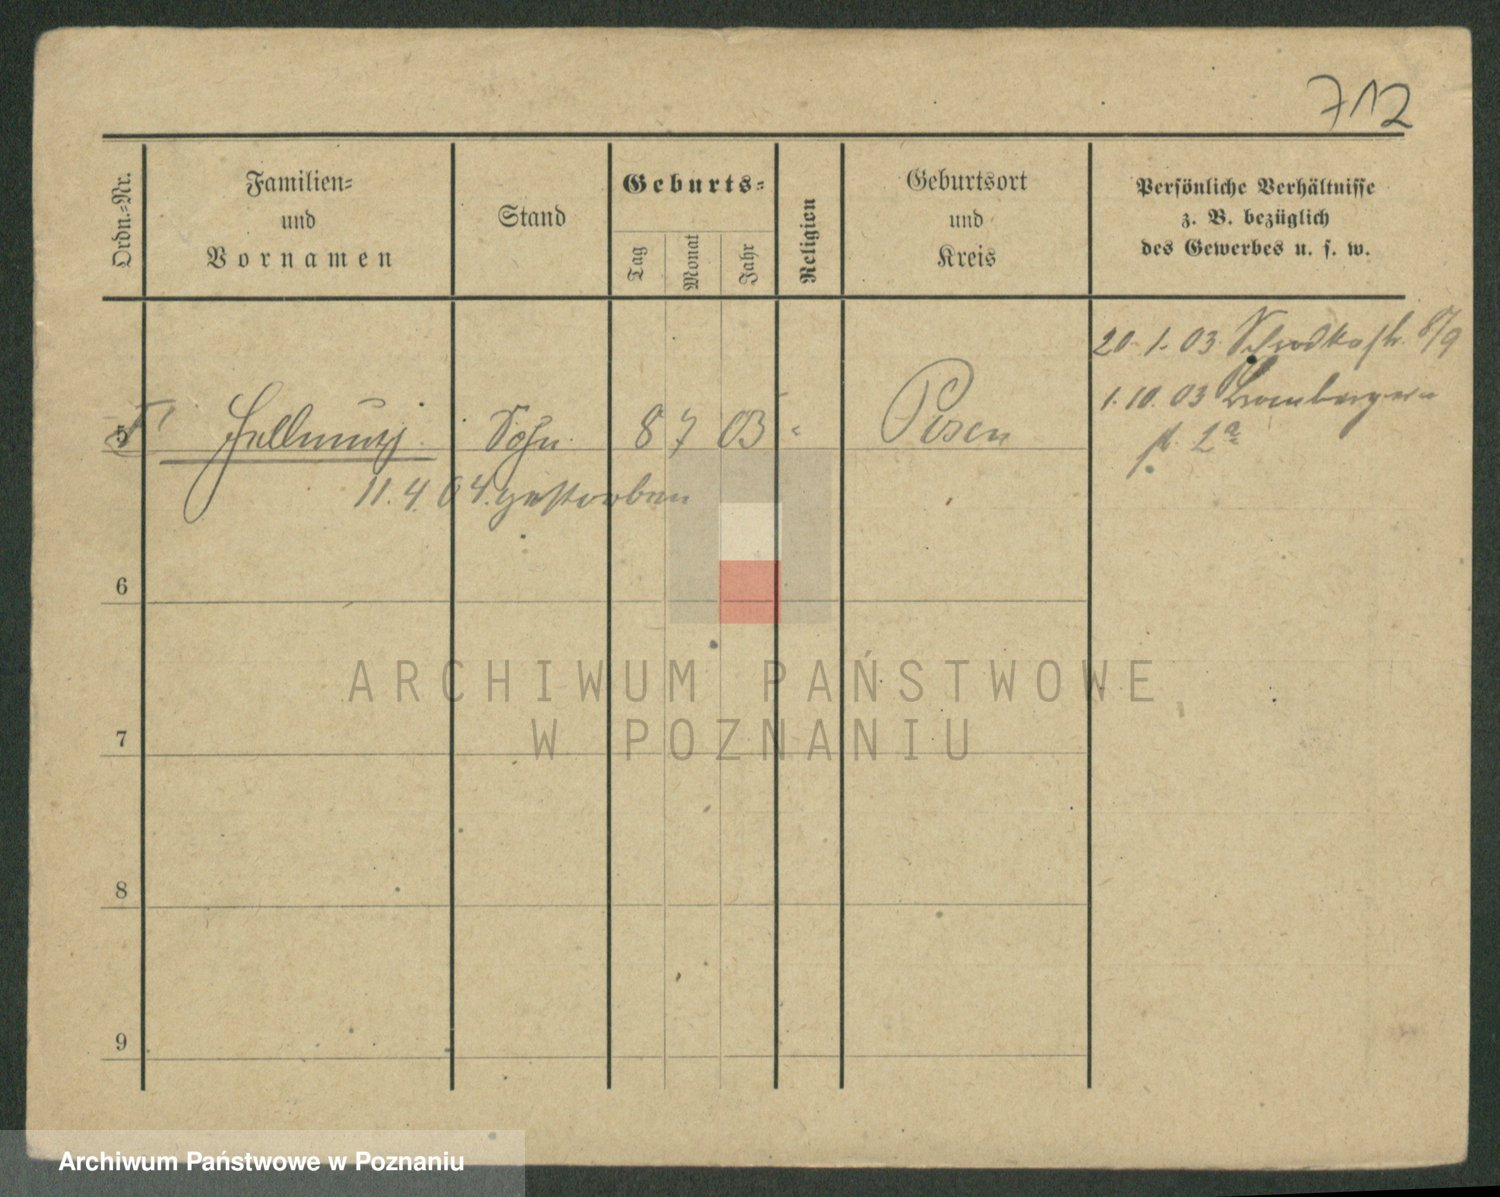 712
Ordn.-Nr.
Familien-
und
Vornamen
Stand
Geburts-
Tag
Monat
Jahr
Religion
Geburtsort
und
Kreis
Persönliche Verhältnisse
z. B. bezüglich
des Gewerbes u. s. w.
20. 1. 03 Schrodkastr. 8/9
1. 10. 03 Brombergerstr.
2a
5 Hellmuth Sohn 8 7 03 " Posen
11. 4. 04. gestorben
6
7
8
9
ARCHIWUM PAŃSTWOWE
W POZNANIU
Archiwum Państwowe w Poznaniu